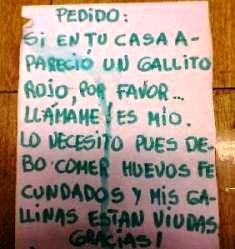 PEDIDO:
SI EN TU CASA A-
PARECIÓ UN GALLITO
ROJO, POR FAVOR...
LLÁMAME! ES MÍO.
LO NECESITO PUES DE-
BO COMER HUEVOS FE
CUNDADOS Y MIS GA-
LLINAS ESTÁN VIUDAS
GRACIAS!